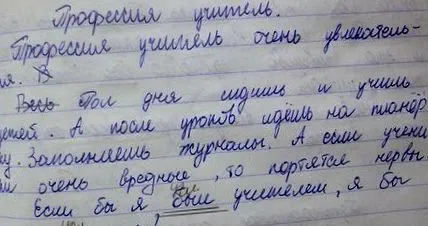 Профессия учитель.
Профессия учитель очень увлекатель-
ная.
Весь Пол дня сидишь и учишь
детей. А после уроков идёшь на планёр
ку. Заполняешь журналы. А если учени
ки очень вредные, то портятся нервы.
Если бы я, был учителем, я бы